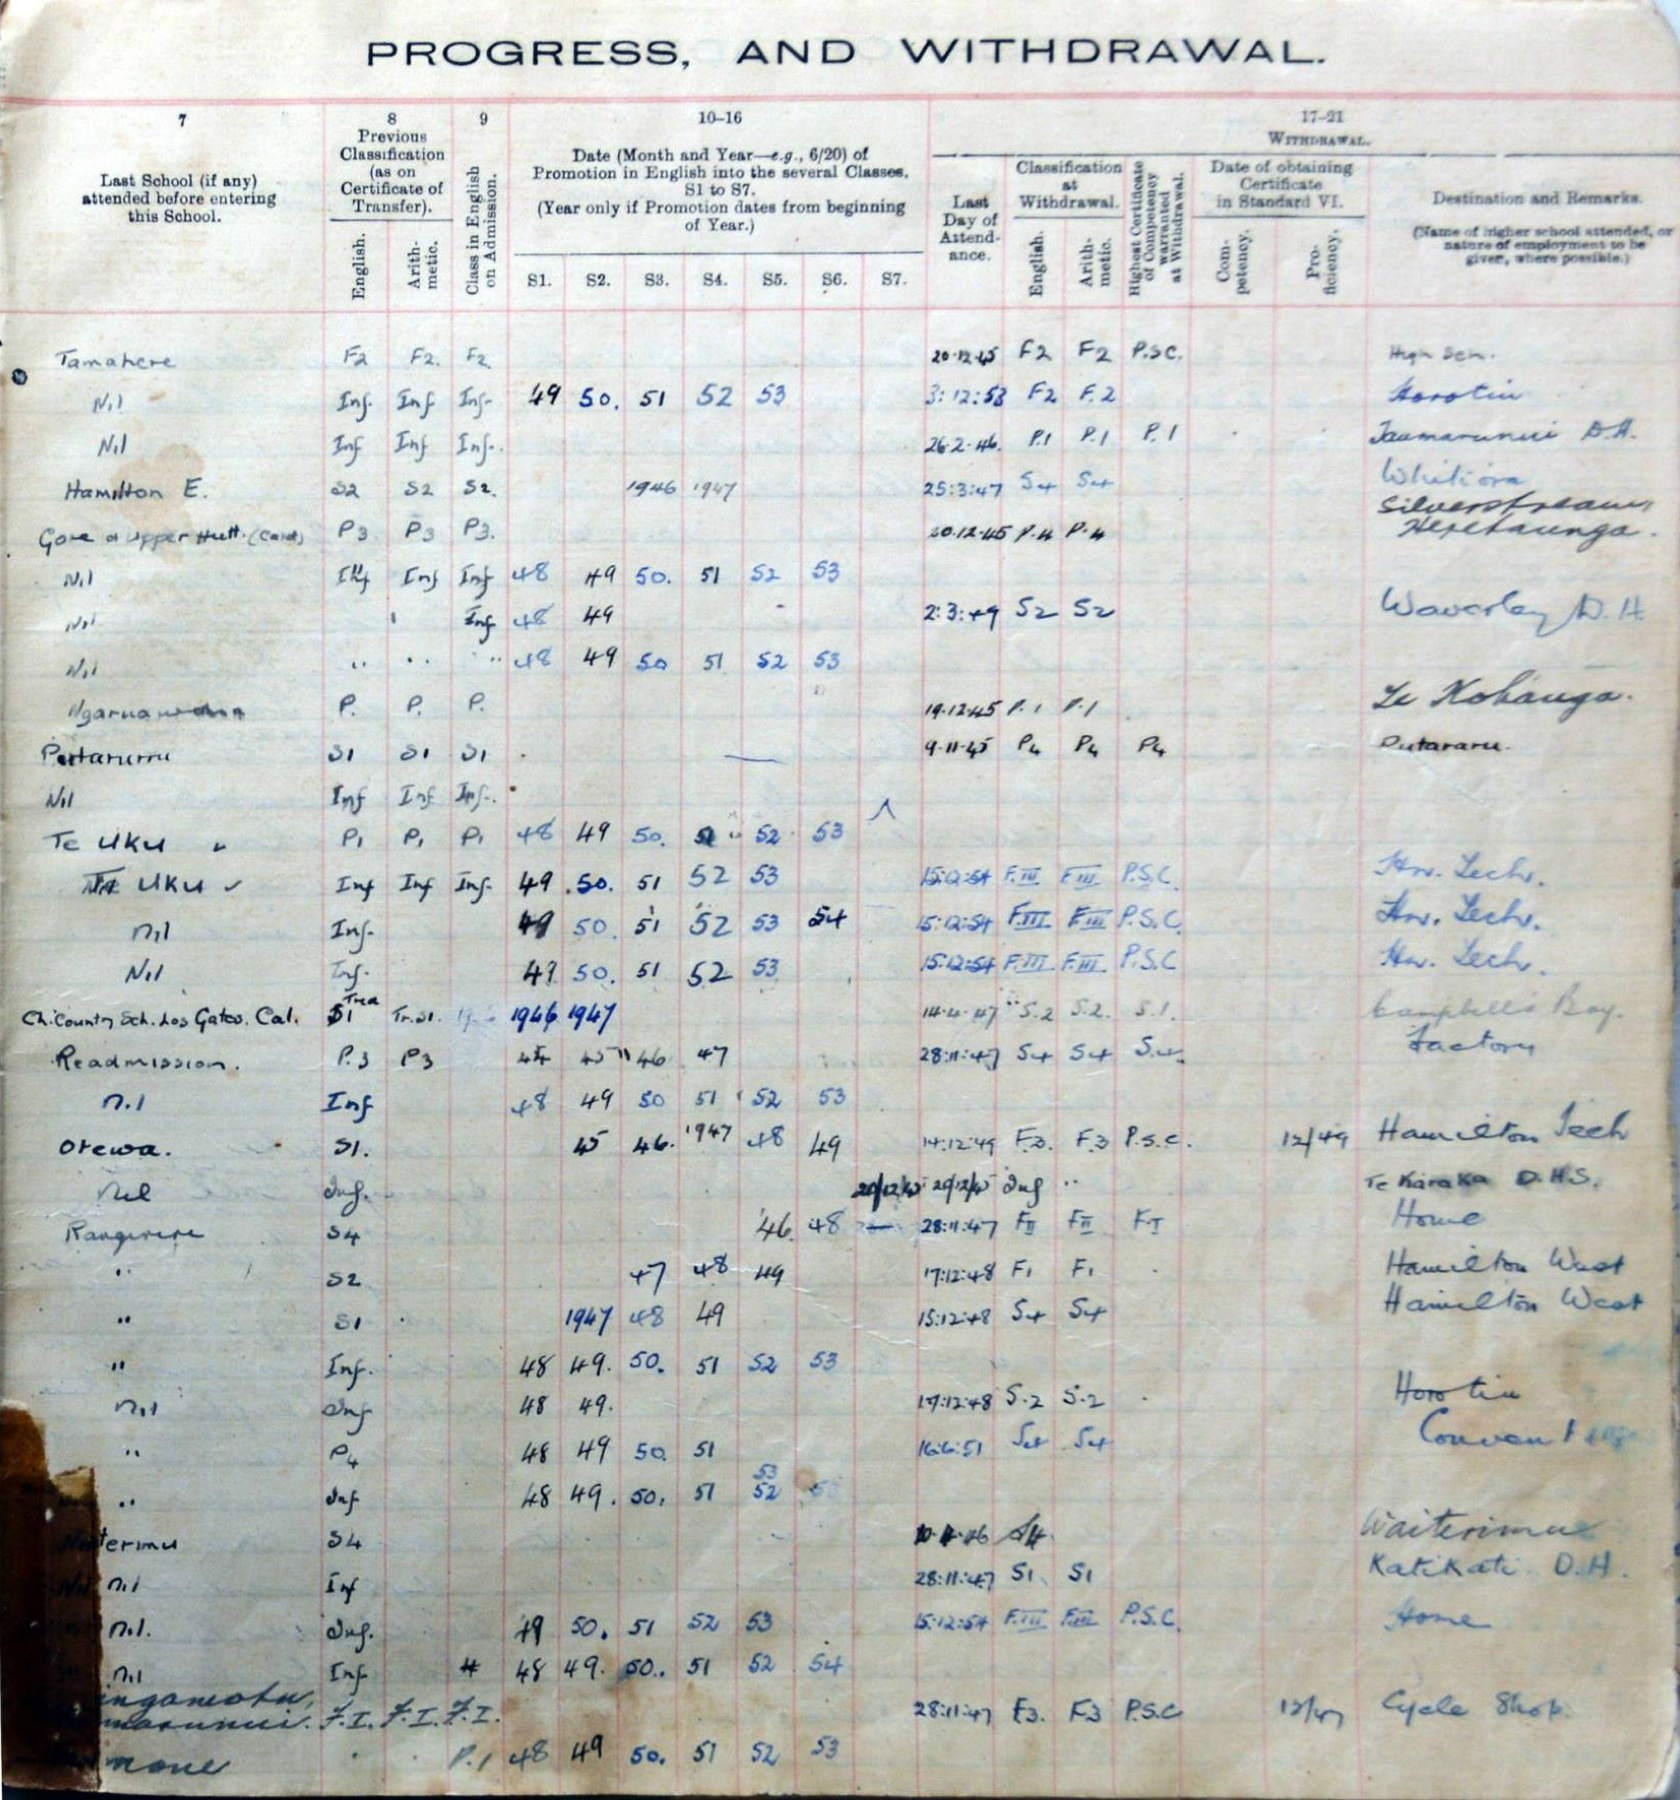 PROGRESS, AND WITHDRAWAL.
7 8 9 10–16 17–21
Last School (if any) attended before entering this School.
Previous Classification (as on Certificate of Transfer).
English. Arith-metic.
Class in English on Admission.
Date (Month and Year—e.g., 6/20) of Promotion in English into the several Classes, S1 to S7.
(Year only if Promotion dates from beginning of Year.)
S1. S2. S3. S4. S5. S6. S7.
WITHDRAWAL.
Last Day of Attend-ance.
Classification at Withdrawal.
English. Arith-metic.
Highest Certificate of Competency warranted at Withdrawal.
Date of obtaining Certificate in Standard VI.
Com-petency. Pro-ficiency.
Destination and Remarks.
(Name of higher school attended, or nature of employment to be given, where possible.)
Tamahere F2 F2. F2 20.12.45 F2 F2 P.S.C. High Sch.
Nil Inf. Inf Inf- 49 50. 51 52 53 3:12:53 F2 F.2 Horotiu
Nil Inf Inf Inf-. 26.2.46. P.1 P.1 P.1 Taumarunui D.H.
Hamilton E. S2 S2 S2. 1946 1947 25:3:47 S4 S4 Whitiora
Gore & Upper Hutt. (Card) P3 P3 P3. 20.12.45 P.4 P.4 Silverstream Heretaunga.
Nil Inf Inf Inf 48 49 50. 51 52 53
Nil Inf 48 49 2:3:49 S2 S2 Waverley D.H.
Nil " " " 48 49 50 51 52 53
Ngaruawahia P. P. P. 19.12.45 P.1 P.1 Te Kohanga.
Putaruru S1 S1 S1 9.11.45 P4 P4 P4 Putaruru.
Nil Inf Inf Inf-.
Te Uku P1 P1 P1 48 49 50. 51 52 53
Te Uku Inf Inf Inf- 49 50. 51 52 53 15:12:54 F.III F.III P.S.C. Hn. Tech.
nil Inf- 49 50. 51 52 53 54 15:12:54 F.III F.III P.S.C. Hn. Tech.
Nil Inf- 49 50. 51 52 53 15:12:54 F.III F.III P.S.C Hn. Tech.
Ch. Country Sch. Los Gatos. Cal. S1 Tr.S1. 1946 1947 14.4.47 S.2 S.2. S.1. Campbell's Bay.
Readmission. P.3 P3 44 45 46 47 28:11:47 S4 S4 S4. Factory
n.l Inf 48 49 50 51 52 53
Otewa. S1. 45 46. 1947 48 49 14:12:49 F3. F3 P.S.C. 12/49 Hamilton Tech
Nil Inf. 20/12/45 20/12/45 Inf " Te Karaka D.H.S.
Rangiriri S4 46. 48 28:11:47 FII FII FI Home
" S2 47 48 49 17:12:48 F1 F1 Hamilton West
" S1 1947 48 49 15:12:48 S4 S4 Hamilton West
" Inf. 48 49. 50. 51 52 53
nil Inf 48 49. 17:12:48 S.2 S.2 Horotiu
" P4 48 49 50. 51 16:6:51 S4 S4 Convent
53
" Inf 48 49. 50. 51 52
terimu S4 S4. Waiterimu
nil Inf 28:11:47 S1 S1 Katikati D.H.
n.l. Inf. 49 50. 51 52 53 15:12:54 F.III F.III P.S.C. Home
nil Inf 48 49. 50. 51 52 54
F.I. F.I. F.I. 28:11:47 F3. F3 P.S.C 12/47 Cycle Shop.
none P.1 48 49 50. 51 52 53